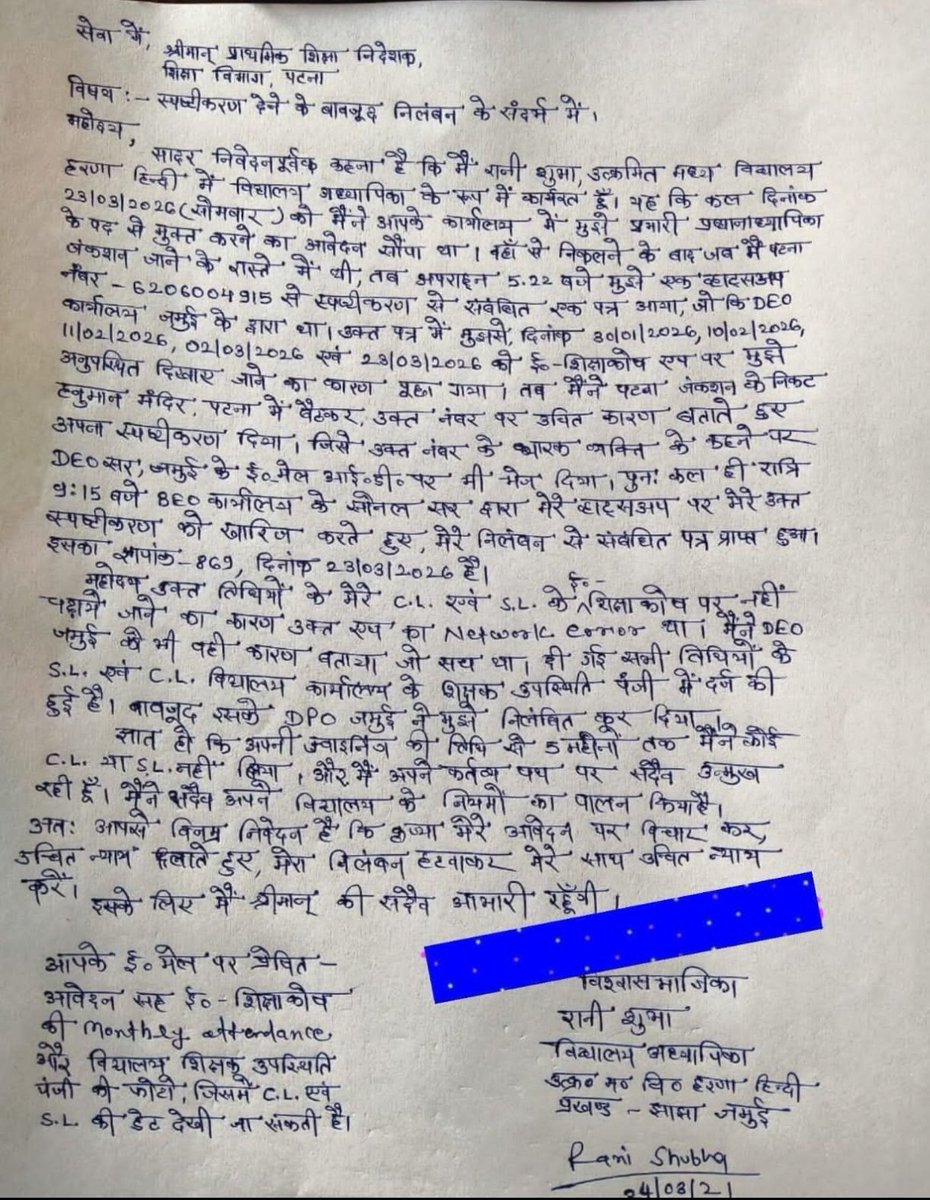 सेवा में,
श्रीमान् प्राथमिक शिक्षा निदेशक,
शिक्षा विभाग, पटना
विषय :- स्पष्टीकरण देने के बावजूद निलंबन के संदर्भ में।
महोदय,
सादर निवेदनपूर्वक कहना है कि मैं रानी शुभा, उत्क्रमित मध्य विद्यालय
हरणा हिन्दी में विद्यालय अध्यापिका के रूप में कार्यरत हूँ। यह कि कल दिनांक
23/03/2026 (सोमवार) को मैंने आपके कार्यालय में मुझे प्रभारी प्रधानाध्यापिका
के पद से मुक्त करने का आवेदन सौंपा था। वहाँ से निकलने के बाद जब मैं पटना
जंकशन जाने के रास्ते में थी, तब अपराह्न 5.22 बजे मुझे एक व्हाट्सअप
नंबर - 6206004915 से स्पष्टीकरण से संबंधित एक पत्र आया, जो कि DEO
कार्यालय जमुई के द्वारा था। उक्त पत्र में मुझसे, दिनांक 30/01/2026, 10/02/2026,
11/02/2026, 02/03/2026 एवं 23/03/2026 को ई०-शिक्षाकोष एप पर मुझे
अनुपस्थित दिखाए जाने का कारण पूछा गया। तब मैंने पटना जंकशन के निकट
हनुमान मंदिर, पटना में बैठकर, उक्त नंबर पर उचित कारण बताते हुए
अपना स्पष्टीकरण दिया। जिसे उक्त नंबर के धारक व्यक्ति के कहने पर
DEO सर, जमुई के ई०मेल आई०डी० पर भी भेज दिया। पुनः कल ही रात्रि
9:15 बजे BEO कार्यालय के सोनल सर द्वारा मेरे व्हाट्सअप पर मेरे उक्त
स्पष्टीकरण को खारिज करते हुए, मेरे निलंबन से संबंधित पत्र प्राप्त हुआ।
इसका ज्ञापांक-869, दिनांक 23/03/2026 है।
महोदय उक्त तिथियों के मेरे C.L. एवं S.L. के ई०-शिक्षाकोष पर नहीं
जाने का कारण उक्त एप का Network error था। मैंने DEO
जमुई को भी वही कारण बताया जो सत्य था। दी गई सभी तिथियों के
S.L. एवं C.L. विद्यालय कार्यालय के शिक्षक उपस्थिति पंजी में दर्ज की
हुई है। बावजूद इसके DPO जमुई ने मुझे निलंबित कर दिया।
ज्ञात हो कि अपनी ज्वाइनिंग की तिथि से 5 महीनों तक मैंने कोई
C.L. या S.L. नहीं लिया। और मैं अपने कर्तव्य पथ पर सदैव उन्मुख
रही हूँ। मैंने सदैव अपने विद्यालय के नियमों का पालन किया है।
अतः आपसे विनम्र निवेदन है कि कृप्या मेरे आवेदन पर विचार कर,
उचित न्याय दिलाते हुए, मेरा निलंबन हटवाकर मेरे साथ उचित न्याय
करें।
इसके लिए मैं श्रीमान् की सदैव आभारी रहूँगी।
आपके ई०मेल पर प्रेषित -
आवेदन सह ई०-शिक्षाकोष
की Monthly attendance
और विद्यालय शिक्षक उपस्थिति
पंजी की फोटो, जिसमें C.L. एवं
S.L. की डेट देखी जा सकती है।
विश्वासभाजिका
रानी शुभा
विद्यालय अध्यापिका
उत्क्र० म० वि० हरणा हिन्दी
प्रखण्ड - झाझा जमुई
Rani Shubha